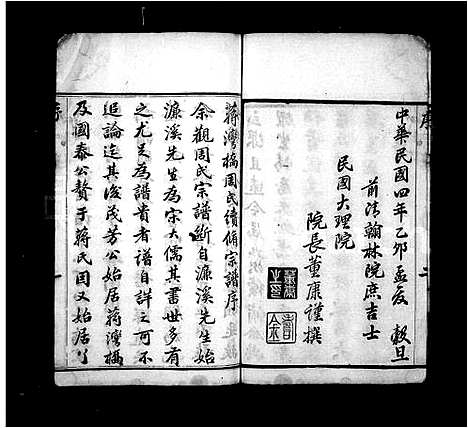 中華民國四年乙卯孟夏　穀旦
前清翰林院庶吉士
民國大理院
院長董康謹撰
蔣灣橋周氏續脩宗譜序
余觀周氏宗譜斷自濂溪先生始
濂溪先生為宗大儒其書世多有
之尤足為譜貴者譜自詳之可不
追論迄其後茂芳公始居蔣灣橋
及國泰公贅于蔣氏因又始居
序
二
序
一